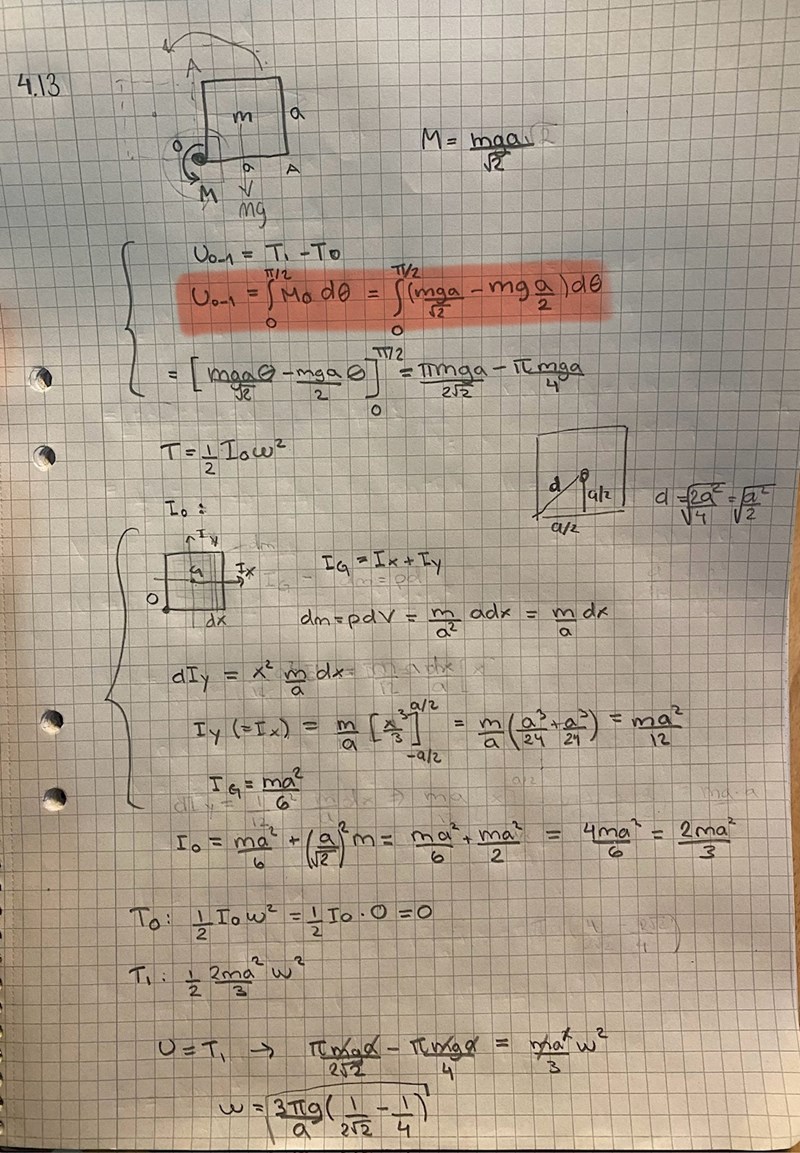 4.13
A
m
a
O
a
A
M
mg
M = mga/√2
U₀₋₁ = T₁ - T₀
U₀₋₁ = ∫₀^{π/2} M₀ dθ = ∫₀^{π/2} (mga/√2 - mg a/2) dθ
= [mgaθ/√2 - mga/2 θ]₀^{π/2} = πmga/2√2 - πmga/4
T = 1/2 I₀ω²
d
a/2
a/2
d = √2a²/√4 = √a²/√2
I₀ :
I_y
G
I_x
O
dx
I_G = I_x + I_y
dm = ρdV = m/a² adx = m/a dx
dI_y = x² m/a dx
I_y (=I_x) = m/a [x³/3]_{-a/2}^{a/2} = m/a (a³/24 + a³/24) = ma²/12
I_G = ma²/6
I₀ = ma²/6 + (a/√2)² m = ma²/6 + ma²/2 = 4ma²/6 = 2ma²/3
T₀: 1/2 I₀ω² = 1/2 I₀ · 0 = 0
T₁: 1/2 2ma²/3 ω²
U = T₁ → πmga/2√2 - πmga/4 = ma²/3 ω²
ω = √(3πg/a (1/2√2 - 1/4))